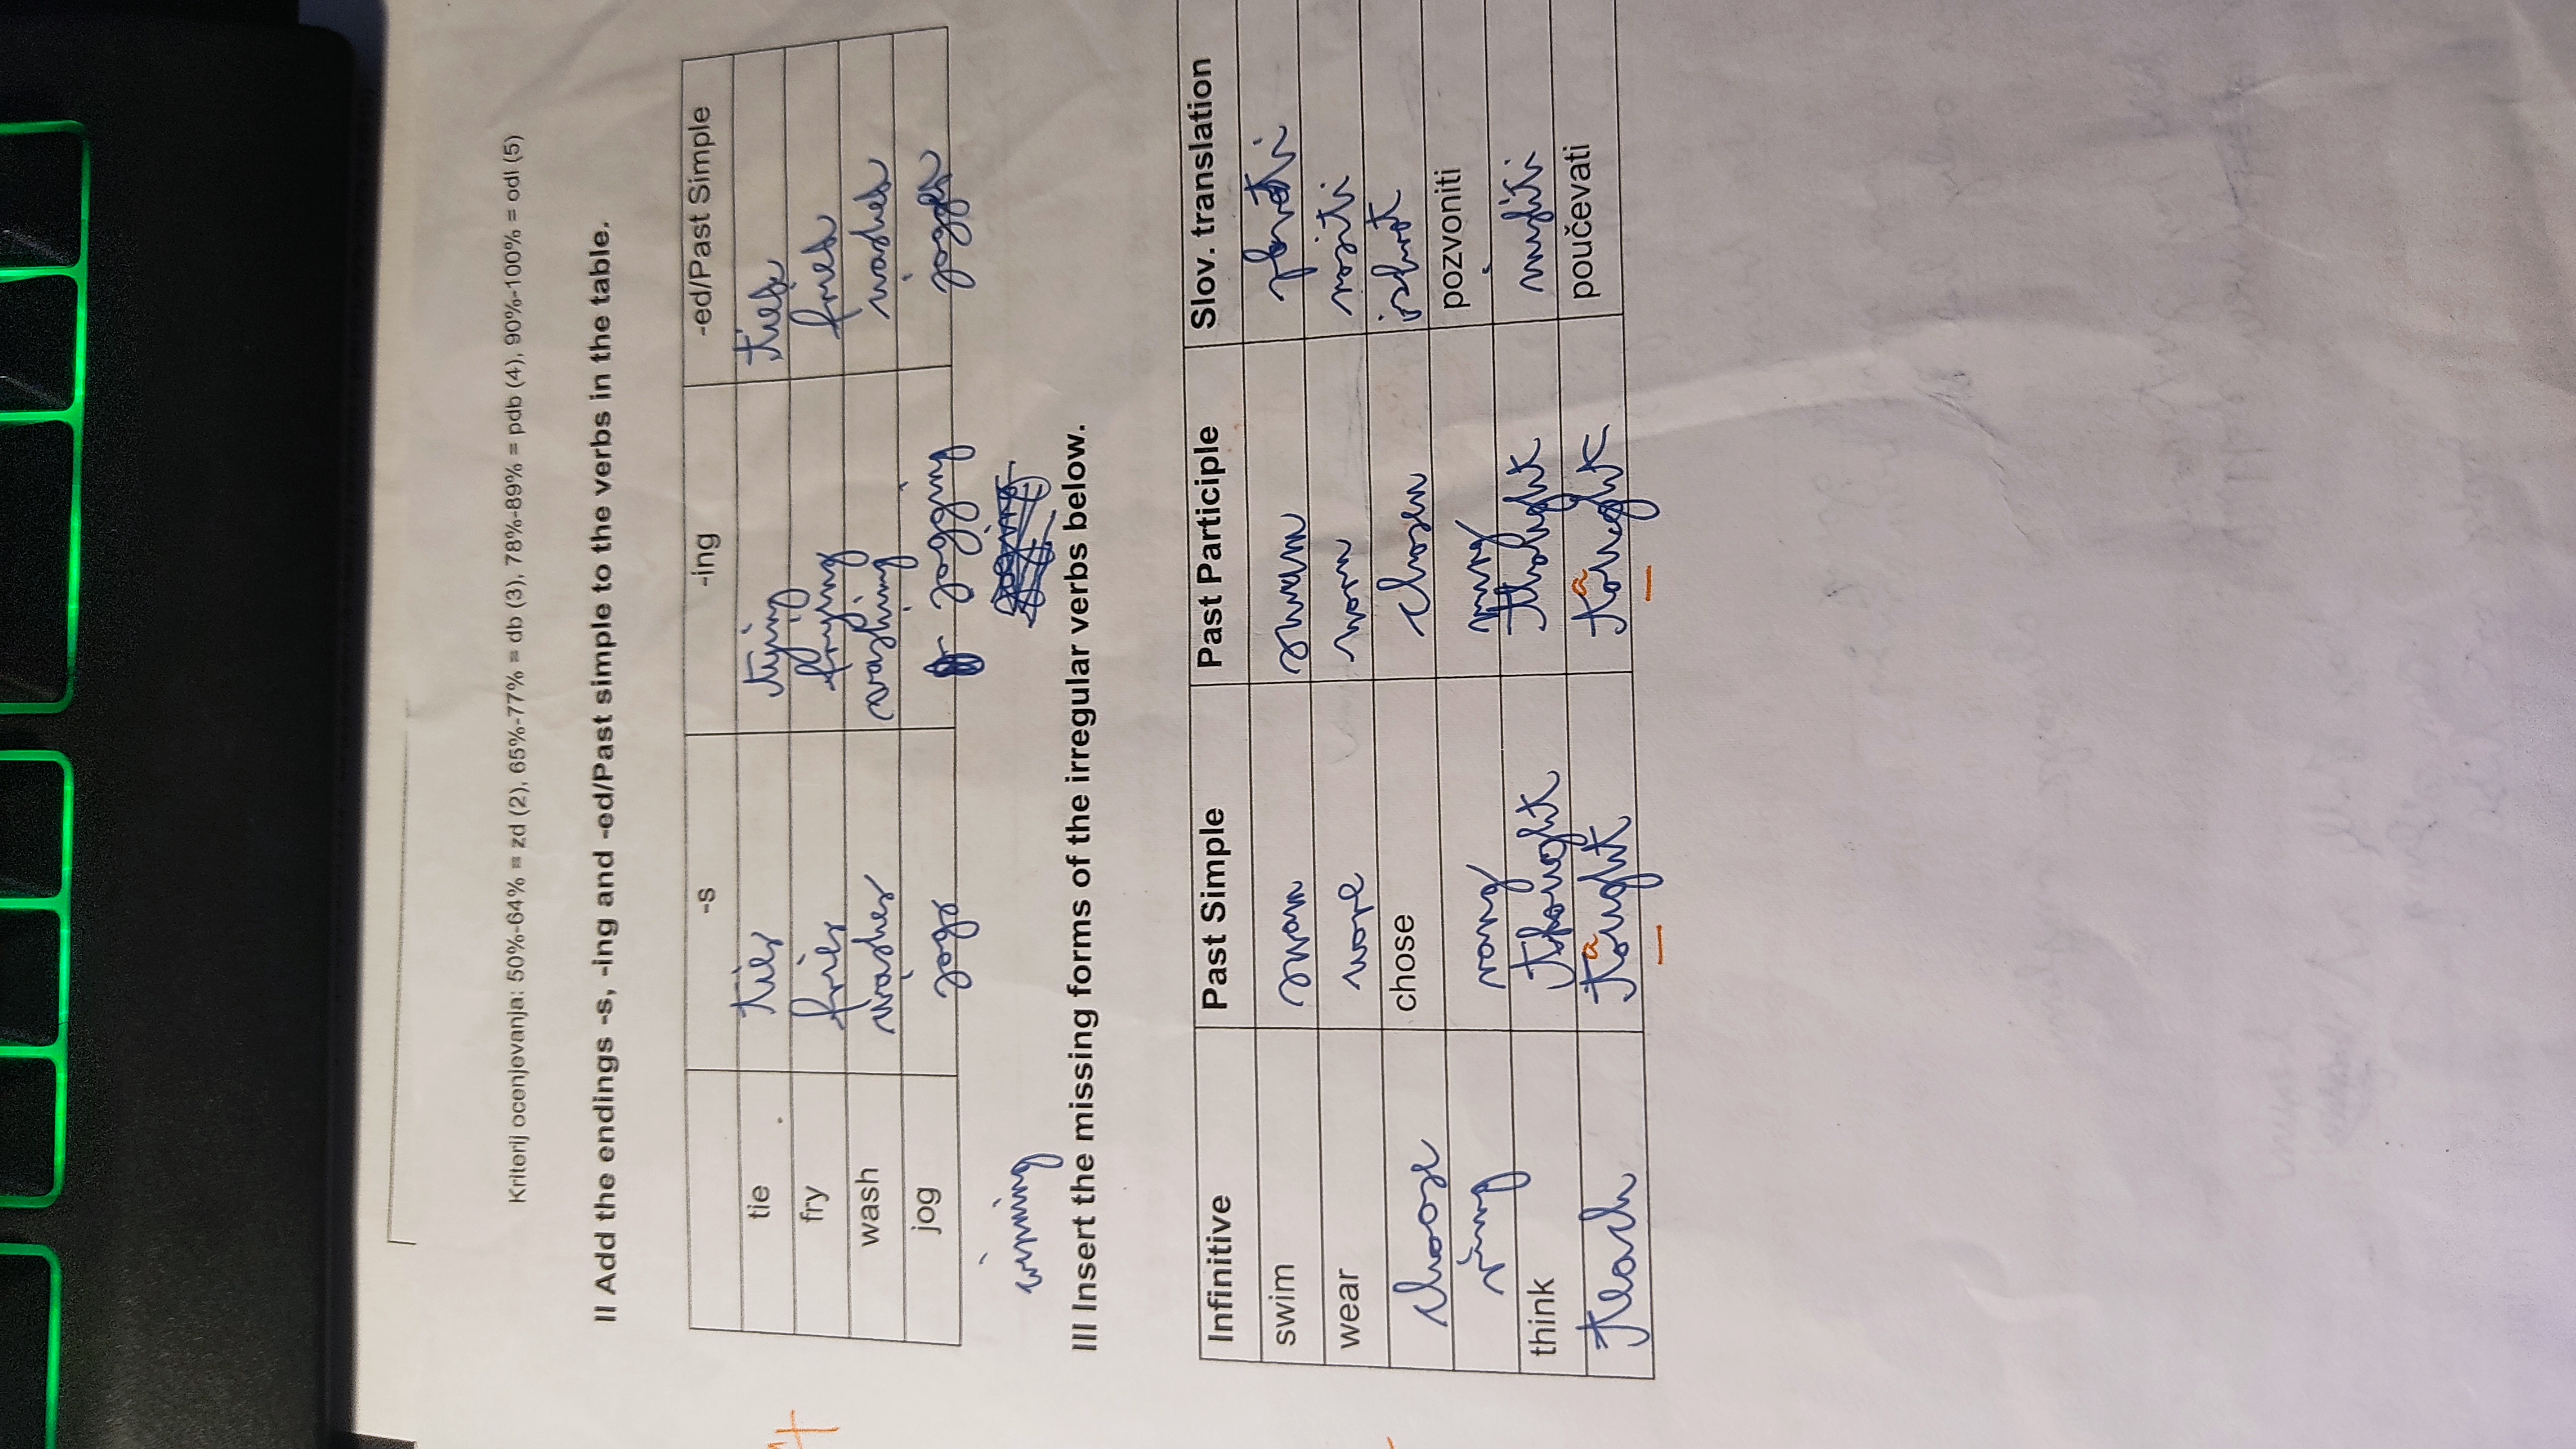 Kriterij ocenjevanja: 50%-64% = zd (2), 65%-77% = db (3), 78%-89% = pdb (4), 90%-100% = odl (5)
II Add the endings -s, -ing and -ed/Past simple to the verbs in the table.
-s -ing -ed/Past Simple
tie ties tying tied
fry fries frying fried
wash washes washing washed
jog jogs jogging jogged
winning
III Insert the missing forms of the irregular verbs below.
Infinitive Past Simple Past Participle Slov. translation
swim swam plavati
wear wore worn nositi
choose chose chosen izbrat
ring rang rung pozvoniti
think thought thought misliti
teach tought tought poučevati
a a